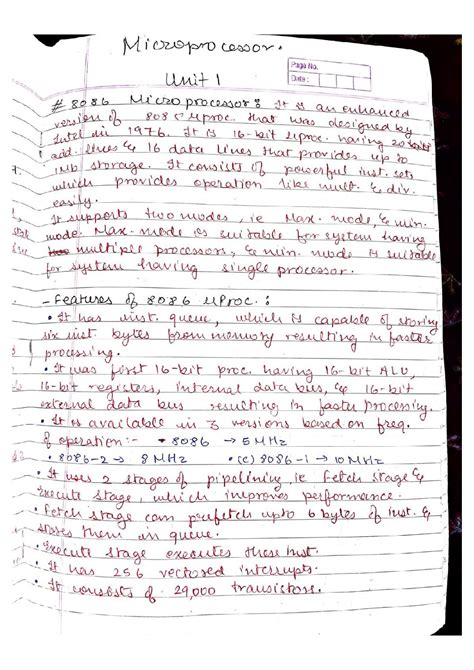 Microprocessor.
Page No.
Date:
Unit 1
# 8086 Microprocessor: It is an enhanced
version of 8085 uproc. that was designed by
Intel in 1976. It is 16-bit uproc. having 20
add. lines & 16 data lines that provides up to
1Mb storage. It consists of powerful inst. sets
which provides operation like mult. & div.
easily.
It supports two modes, ie Max. mode, & min.
mode. Max. mode is suitable for system having
multiple processors, & min. mode is suitable
for system having single processor.
- Features of 8086 uProc. :
• It has inst. queue, which is capable of storing
six inst. bytes from memory resulting in faster
processing.
• It was first 16-bit proc. having 16-bit ALU,
16-bit registers, internal data bus, & 16-bit
external data bus resulting in faster processing.
• It is available in 3 versions based on freq.
of operation:- • 8086 → 5MHz
• 8086-2 → 8MHz • (c) 8086-1 → 10MHz
• It uses 2 stages of pipelining, ie Fetch Stage &
Execute Stage, which improves performance.
• Fetch stage can prefetch upto 6 bytes of inst. &
stores them in queue.
• Execute stage executes these inst.
• It has 256 vectored interrupts.
• It consists of 29,000 transistors.